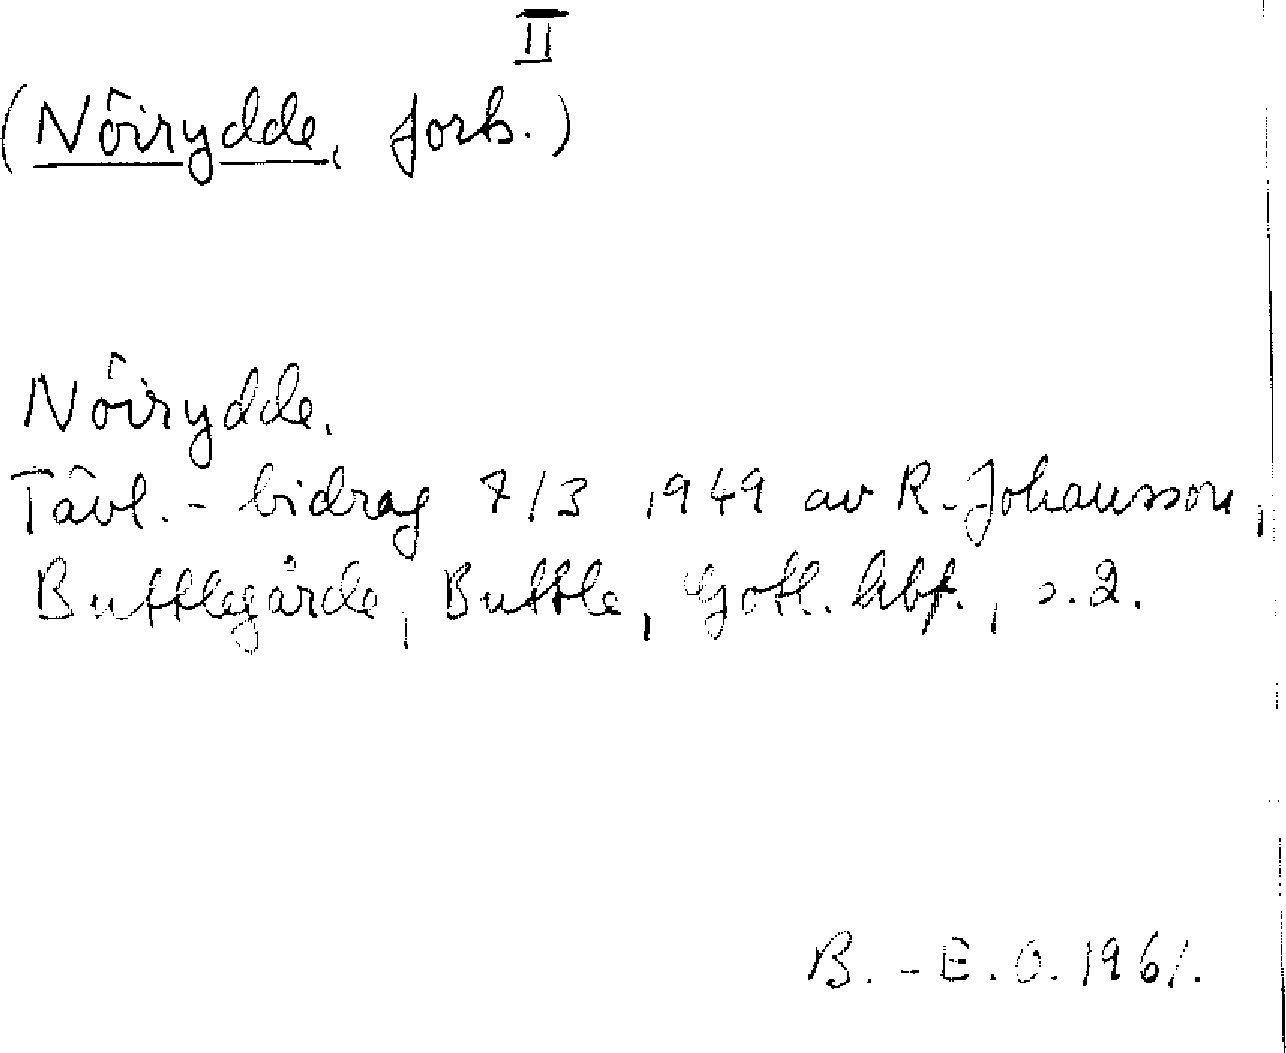 II
(Nôirydde, forts.)
Nôirydde.
Tävl.-bidrag 7/3 1949 av R. Johansson,
Buttlegårde, Buttle, Gotl. kbf., s. 2.
B.-E. O. 1961.